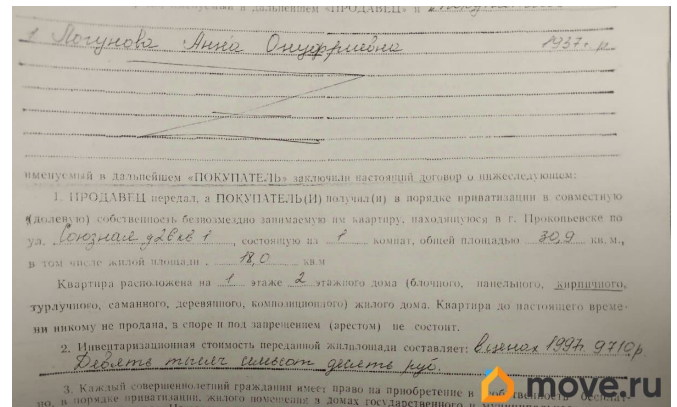 именуемый в дальнейшем «ПРОДАВЕЦ» и
1 Логунова Анна Онуфриевна 1937 г.р
именуемый в дальнейшем «ПОКУПАТЕЛЬ» заключили настоящий договор о нижеследующем:
1. ПРОДАВЕЦ передал, а ПОКУПАТЕЛЬ(И) получил(и) в порядке приватизации в совместную
(долевую) собственность безвозмездно занимаемую им квартиру, находящуюся в г. Прокопьевске по
ул. Союзная д26 кв 1, состоящую из 1 комнат, общей площадью 30,9 кв. м.,
в том числе жилой площади 18,0 кв.м
Квартира расположена на 1 этаже 2 этажного дома (блочного, панельного, кирпичного,
турлучного, саманного, деревянного, композиционного) жилого дома. Квартира до настоящего време-
ни никому не продана, в споре и под запрещением (арестом) не состоит.
2. Инвентаризационная стоимость переданной жилплощади составляет: в ценах 1997г. 9710 р
Девять тысяч семьсот десять руб.
3. Каждый совершеннолетний гражданин имеет право на приобретение в собственность бесплат-
но, в порядке приватизации, жилого помещения в домах государственного и
move.ru